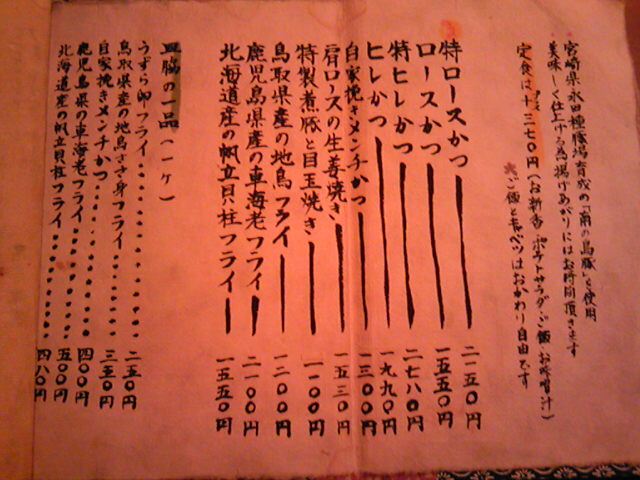 宮崎県永田種豚場育成の「南の島豚」を使用
美味しく仕上げる為揚げあがりにはお時間頂きます
定食は+三七〇円(お新香 ポテトサラダ・ご飯・お味噌汁)
ご飯とキャベツはおかわり自由です
特ロースかつ 二一五〇円
ロースかつ 一五五〇円
特ヒレかつ 二七八〇円
ヒレかつ 一九九〇円
自家挽きメンチかつ 一三〇〇円
肩ロースの生姜焼き 一五三〇円
特製煮豚と目玉焼き 一一〇〇円
鳥取県産の地鳥フライ 一二〇〇円
鹿児島県産の車海老フライ 二一〇〇円
北海道産の帆立貝柱フライ 一五五〇円
皿脇の一品(一ヶ)
うずら卵フライ 二五〇円
鳥取県産の地鳥ささ身フライ 三五〇円
自家挽きメンチかつ 四〇〇円
鹿児島県の車海老フライ 五〇〇円
北海道産の帆立貝柱フライ 四八〇円